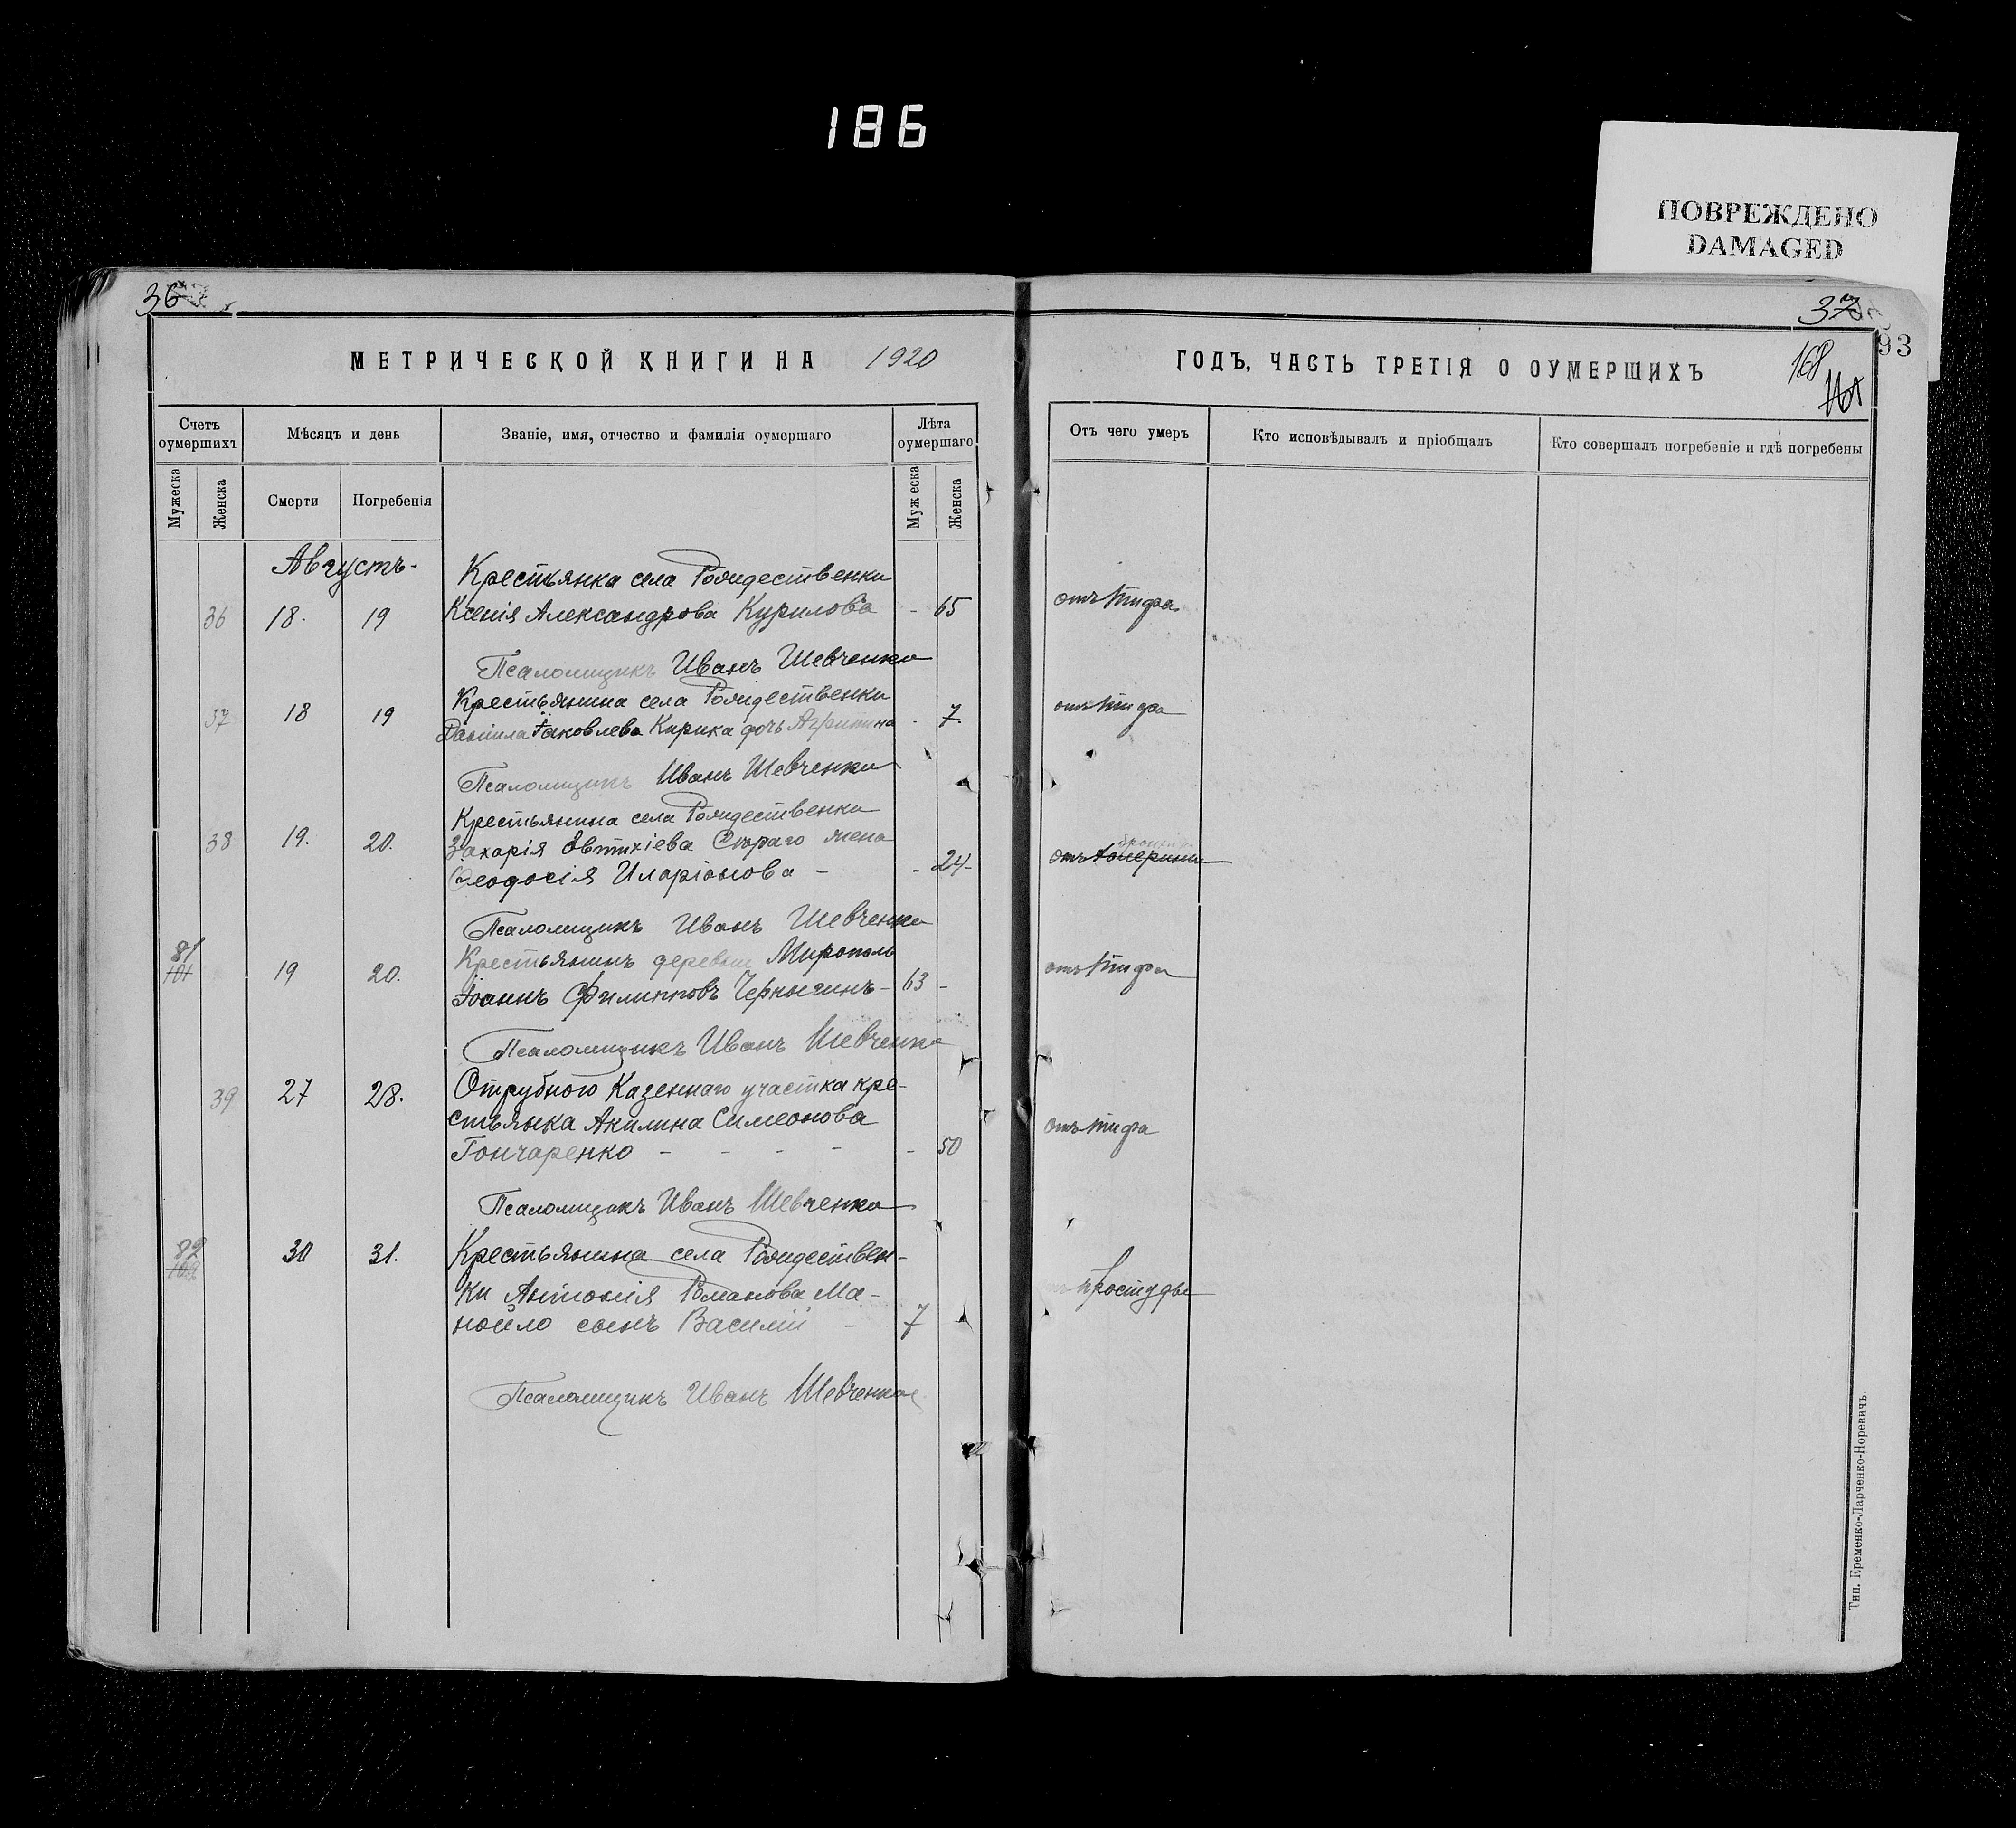 186
ПОВРЕЖДЕНО
DAMAGED
36
37
93
168
МЕТРИЧЕСКОЙ КНИГИ НА 1920
ГОДЪ, ЧАСТЬ ТРЕТІЯ О ОУМЕРШИХЪ
Счетъ оумершихъ
Мѣсяцъ и день
Званіе, имя, отчество и фамилія оумершаго
Лѣта оумершаго
Отъ чего умеръ
Кто исповѣдывалъ и пріобщалъ
Кто совершалъ погребеніе и гдѣ погребены
Мужеска
Женска
Смерти
Погребенія
Мужеска
Женска
Августъ-
Крестьянка села Рождественки
36 18. 19 Ксенія Александрова Курилова - 65 отъ тифа
Псаломщикъ Иванъ Шевченко
Крестьянина села Рождественки
37 18 19 Даніила Іаковлева Кирика дочь Агрипина - 7 отъ тифа
Псаломщикъ Иванъ Шевченко
Крестьянина села Рождественки
38 19. 20. Захарія Евтихіева Сѣраго жена
Ѳеодосія Иларіонова - - 24- отъ
Псаломщикъ Иванъ Шевченко
81 Крестьянинъ деревни Мирополь
101 19 20. Іоаннъ Филипповъ Чернысинъ - 63 - отъ тифа
Псаломщикъ Иванъ Шевченко
39 27 28. Отрубного Казеннаго участка кре-
стьянка Акилина Симеонова
Гончаренко - - - - - 50 отъ тифа
Псаломщикъ Иванъ Шевченко
82 30 31. Крестьянина села Рождествен-
102 ки Антонія Романова Ма- простуды
нойло сынъ Василій - 7
Псаломщикъ Иванъ Шевченко
Тип. Еременко-Ларченко-Норевичъ.